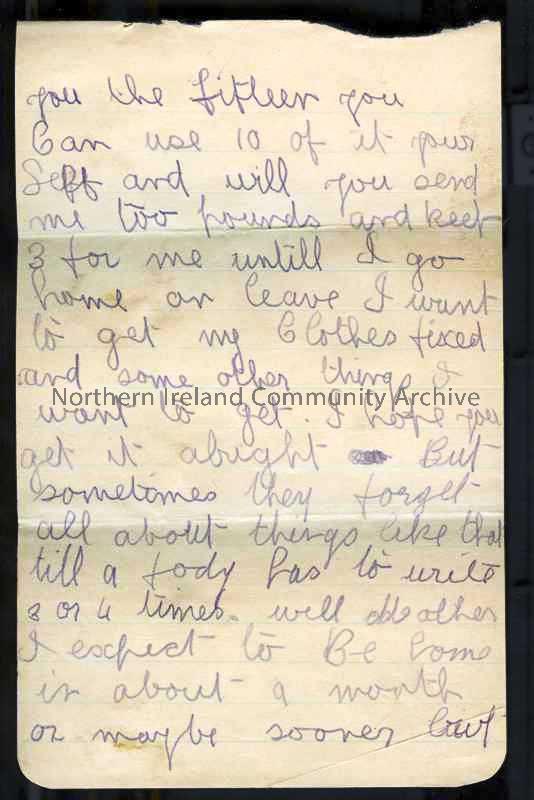 you the fifteen you
Can use 10 of it your
Self and will you send
me too pounds and keep
3 for me untill I go
home on leave I want
to get my Clothes fixed
and some other things I
Northern Ireland Community Archive
want to get. I hope you
get it alright But
sometimes they forget
all about things like that
till a body has to write
3 or 4 times. well Mother
I expect to Be home
in about a month
or maybe sooner but